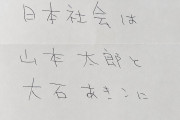 日本社会は
山本太郎と
大石あきこに